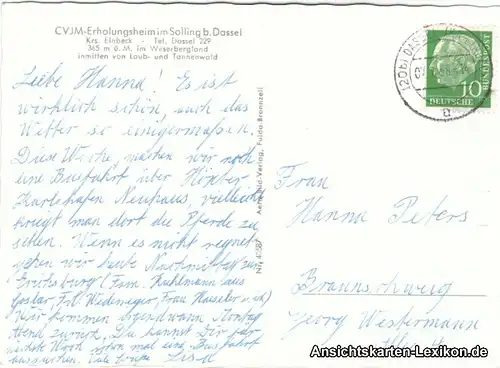 CVJM-Erholungsheim im Solling b. Dassel
Krs. Einbeck - Tel. Dassel 229
365 m ü. M. im Weserbergland
inmitten von Laub- und Tannenwald
Liebe Hanna! Es ist
wirklich schön, auch das
Wetter so einigermaßen.
Diese Woche machen wir noch
eine Busfahrt über Höxter
Karlshafen Neuhaus, vielleicht
kriegt man dort die Pferde zu
sehen. Wenn es nicht regnet
gehen wir heute Nachmittag zur
Erichsburg (Fam. Kuhlmann aus
Goslar, Frl. Wedemeyer, Frau Hasseler u. ich)
Wir kommen irgendwann Montag
Abend zurück. Du kannst Dir für
nächste Woche schon mal eine Busfahrt
aussuchen. Viele Grüße Lisa
Nr. Aerobild-Verlag, Fulda-Bronnzell
(20b) DASSEL
a
10
DEUTSCHE
BUNDESPOST
Frau
Hanna Peters
Braunschweig
Georg Westermann
Allee
Ansichtskarten-Lexikon.de